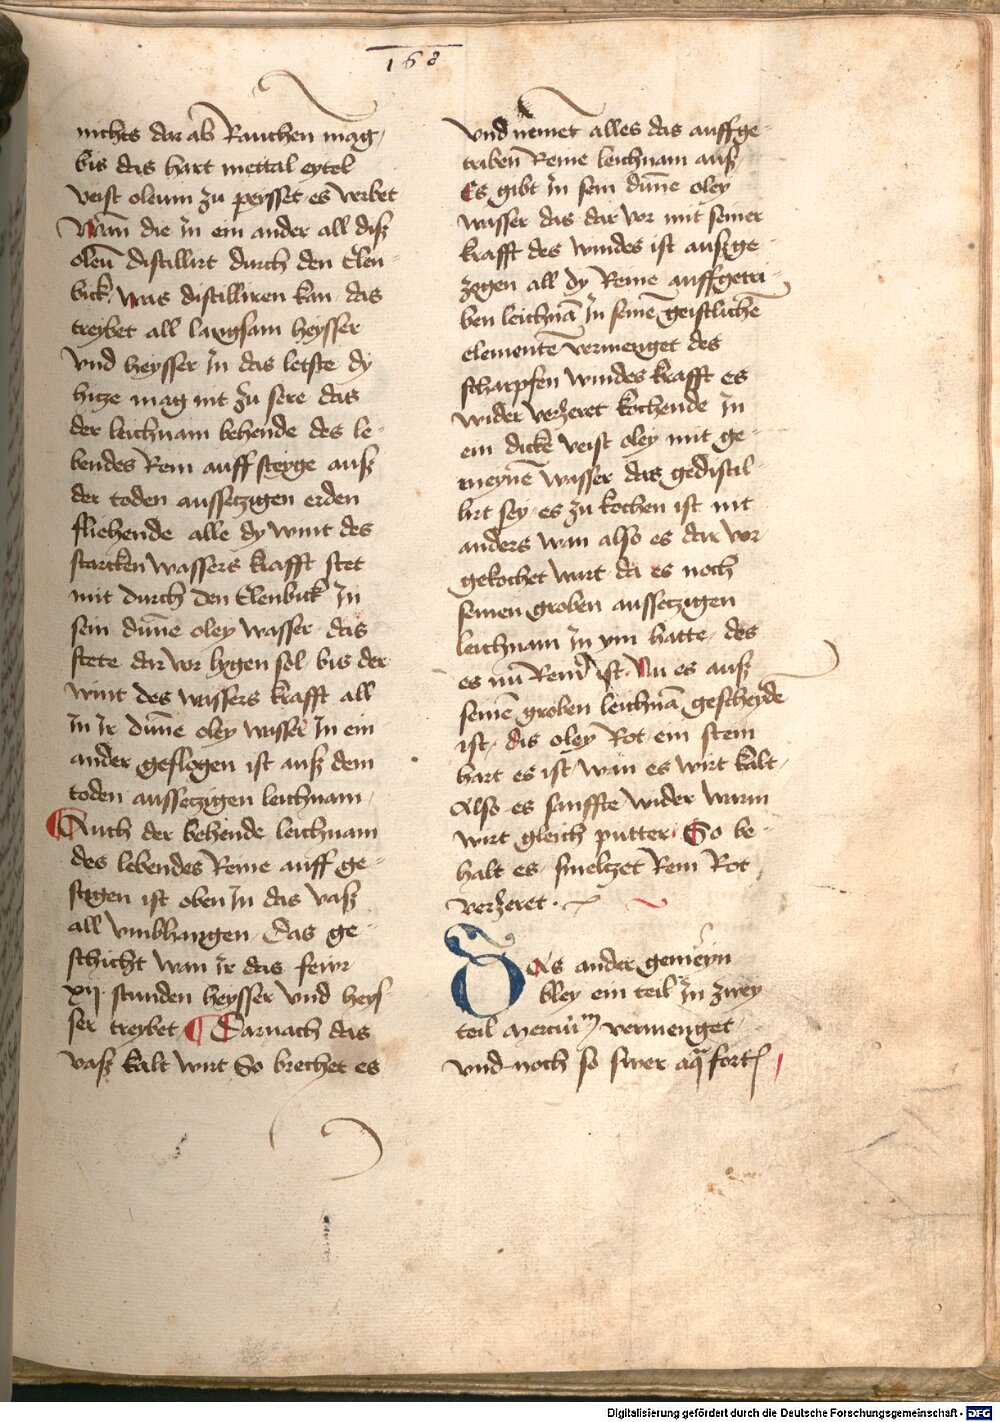 168
nichts dar ab Rauchen mag,
bis das hart mettal eytel
veist oleum zu peysset es verbet
Wan̄ die jn ein ander all disz
oleū distillirt durch den Elen-
bick, was distilliren kan das
treybet all langsam heysser
vnd heysser jn das letste dy
hitze mag nit zu sere das
der leichnam behende des le-
bendes Rein auff steyge ausz
der toden aussetzigen erden
fliehende alle dy wint des
starcken wassers krafft stet
mit durch den Elenbick jn
sein dūne oley wasser das
stete dar vor lygen sol bis der
wint des wassers krafft all
jn jr dūne oley wasser jn ein
ander geflogen ist ausz dem
toden aussetzigen leichnam,
Auch der behende leichnam
des lebendes Reine auff ge-
stigen ist oben jn das vasz
all vmbhangen Das ge-
schicht wan jr das fewr
xij stunden heysser vnd heys
ser treybet Darnach das
vasz kalt wirt So brechet es
vnd nemet alles das auffge-
triben Reine leichnam ausz
Es gibt jn sein dūne oley
wasser das dar vor mit seiner
krafft des windes ist auszge-
zogen all dy Reine auffgetri
ben leichnā jn seinē geistlichē
elementē vermenget des
scharpfen windes krafft es
wider verzeret kochende jn
ein dicke veist oley mit ge-
meynē wasser das gedistil-
lirt sey es zu kochen ist nit
anders wan also es dar vor
gekochet wart da es noch
seinen groben aussetzigen
leichnam jn ym hatte, des
es nū Rein ist. Nu es ausz
seinē groben leichnā gescheydē
ist, dis oley Rot ein stein
hart es ist wan es wirt kalt,
Also es sanffte wider warm
wirt gleich putter. So be-
halt es smeltzet Rein Rot,
verzeret.
Das ander gemeyn
bley ein teil jn zwey
teil mercuriū vermenget,
vnd noch so swer aq̄ fort
Digitalisierung gefördert durch die Deutsche Forschungsgemeinschaft - DFG